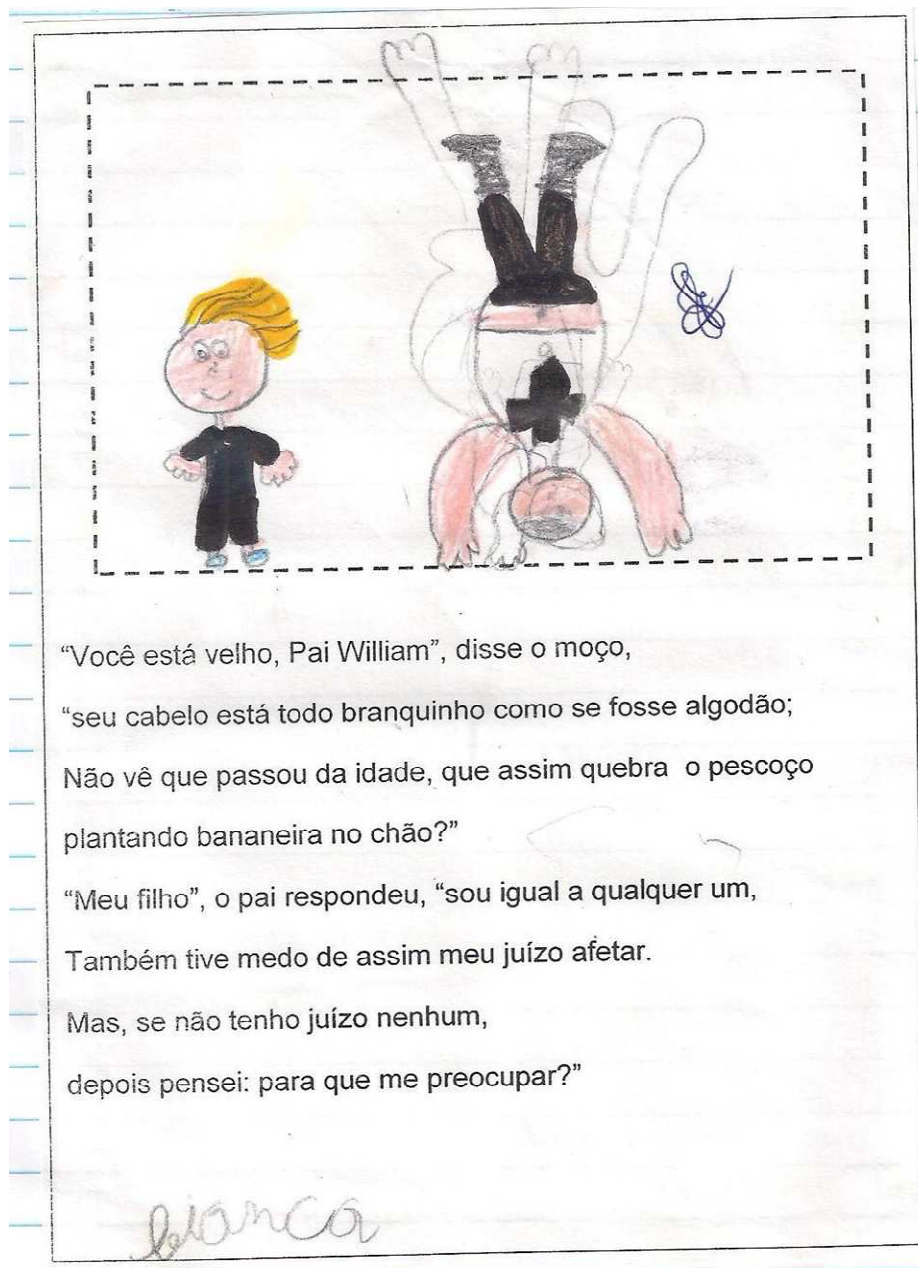 “Você está velho, Pai William”, disse o moço,
“seu cabelo está todo branquinho como se fosse algodão;
Não vê que passou da idade, que assim quebra o pescoço
plantando bananeira no chão?”
“Meu filho”, o pai respondeu, “sou igual a qualquer um,
Também tive medo de assim meu juízo afetar.
Mas, se não tenho juízo nenhum,
depois pensei: para que me preocupar?”
bianca